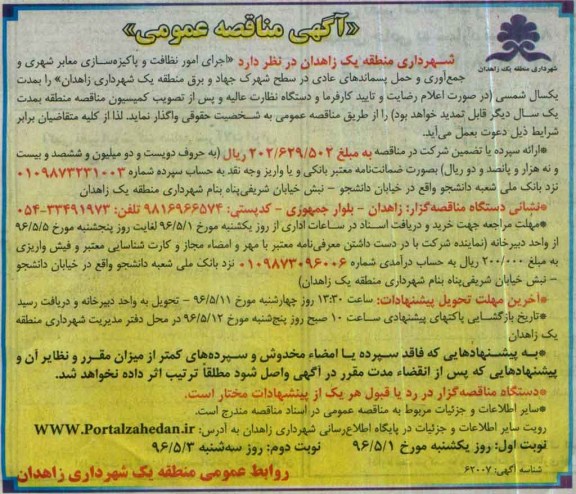 «آگهی مناقصه عمومی»
شهرداری منطقه یک زاهدان
شهرداری منطقه یک زاهدان در نظر دارد «اجرای امور نظافت و پاکیزه‌سازی معابر شهری و
جمع‌آوری و حمل پسماندهای عادی در سطح شهرک جهاد و برق منطقه یک شهرداری زاهدان» را بمدت
یکسال شمسی (در صورت اعلام رضایت و تایید کارفرما و دستگاه نظارت عالیه و پس از تصویب کمیسیون مناقصه بمدت
یک سال دیگر قابل تمدید خواهد بود) را از طریق مناقصه عمومی به شخصیت حقوقی واگذار نماید. لذا از کلیه متقاضیان برابر
شرایط ذیل دعوت بعمل می‌آید.
*ارائه سپرده یا تضمین شرکت در مناقصه به مبلغ ۲۰۲/۶۲۹/۵۰۲ ریال (به حروف دویست و دو میلیون و ششصد و بیست
و نه هزار و پانصد و دو ریال) بصورت ضمانت‌نامه معتبر بانکی و یا واریز وجه نقد به حساب سپرده شماره ۰۱۰۹۸۷۳۲۳۱۰۰۳
نزد بانک ملی شعبه دانشجو واقع در خیابان دانشجو - نبش خیابان شریفی‌پناه بنام شهرداری منطقه یک زاهدان
*نشانی دستگاه مناقصه‌گزار: زاهدان - بلوار جمهوری - کدپستی: ۹۸۱۶۹۶۶۵۷۴ تلفن: ۳۳۴۹۱۹۷۳-۰۵۴
*مهلت مراجعه جهت خرید و دریافت اسناد در ساعات اداری از روز یکشنبه مورخ ۹۶/۵/۱ لغایت روز پنجشنبه مورخ ۹۶/۵/۵
از واحد دبیرخانه (نماینده شرکت با در دست داشتن معرفی‌نامه معتبر با مهر و امضاء مجاز و کارت شناسایی معتبر و فیش واریزی
به مبلغ ۲۰۰/۰۰۰ ریال به حساب درآمدی شماره ۰۱۰۹۸۷۳۰۹۶۰۰۶ نزد بانک ملی شعبه دانشجو واقع در خیابان دانشجو
- نبش خیابان شریفی‌پناه بنام شهرداری منطقه یک زاهدان)
*آخرین مهلت تحویل پیشنهادات: ساعت ۱۳:۳۰ روز چهارشنبه مورخ ۹۶/۵/۱۱ - تحویل به واحد دبیرخانه و دریافت رسید
*تاریخ بازگشایی پاکتهای پیشنهادی ساعت ۱۰ صبح روز پنج‌شنبه مورخ ۹۶/۵/۱۲ در محل دفتر مدیریت شهرداری منطقه
یک زاهدان
*به پیشنهادهایی که فاقد سپرده یا امضاء مخدوش و سپرده‌های کمتر از میزان مقرر و نظایر آن و
پیشنهادهایی که پس از انقضاء مدت مقرر در آگهی واصل شود مطلقاً ترتیب اثر داده نخواهد شد.
*دستگاه مناقصه‌گزار در رد یا قبول هر یک از پیشنهادات مختار است.
*سایر اطلاعات و جزئیات مربوط به مناقصه عمومی در اسناد مناقصه مندرج است.
رویت سایر اطلاعات و جزئیات در پایگاه اطلاع‌رسانی شهرداری زاهدان به آدرس: WWW.Portalzahedan.ir
نوبت اول: روز یکشنبه مورخ ۹۶/۵/۱ نوبت دوم: روز سه‌شنبه ۹۶/۵/۳
شناسه آگهی: ۶۲۰۰۷ روابط عمومی منطقه یک شهرداری زاهدان